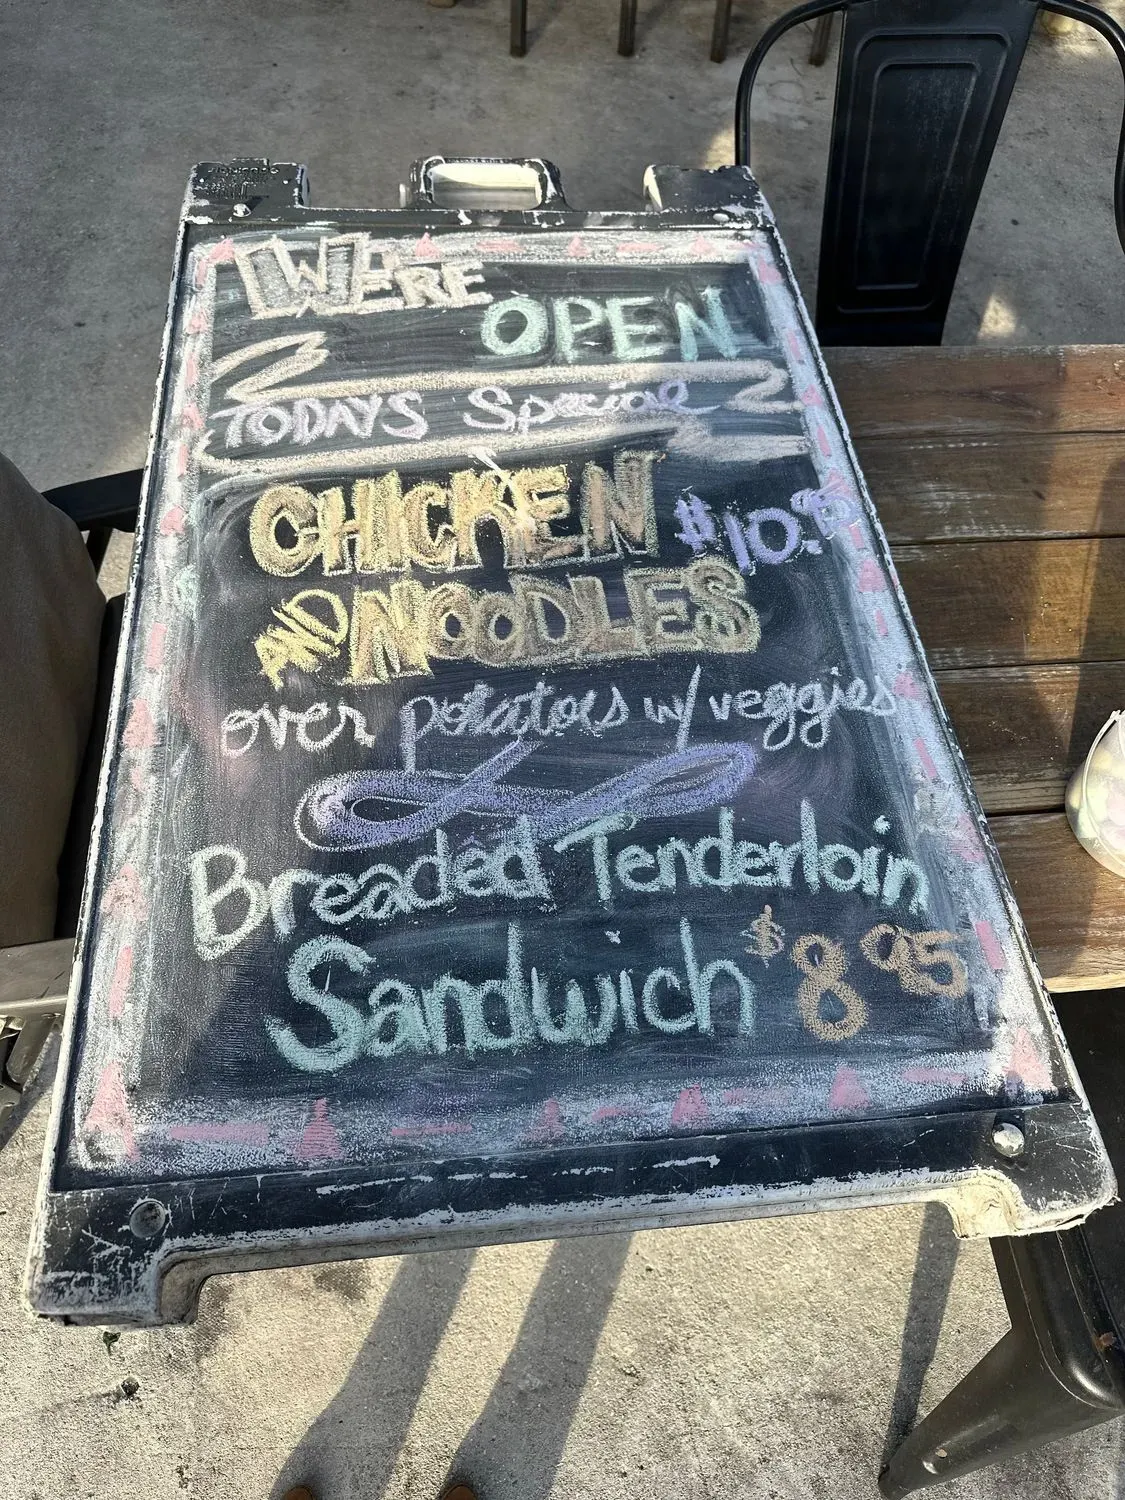 WERE
OPEN
TODAYS Special
CHICKEN
AND NOODLES $10.95
over potatoes w/ veggies
Breaded Tenderloin
Sandwich $8.95